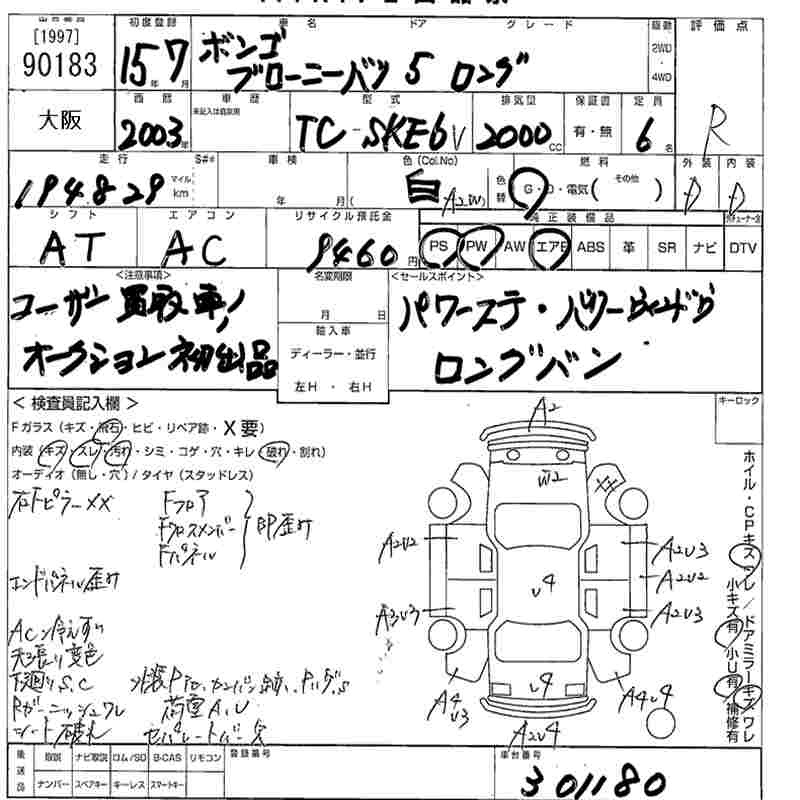 初度登録 車名 ドア グレード 駆動 評価点
[1997]
90183 15年7月 ボンゴ ブローニーバン 5 ロング 2WD・4WD
R
西暦 車歴 型式 排気量 保証書 定員
未記入は自家用
大阪 2003年 TC-SKE6V 2000cc 有・無 6名
走行 S## 車検 色(Col.No) 燃料 外装 内装
194829 マイル km 年 月( 白 A2W) 色替 G・D・電気( その他 ) D D
シフト エアコン リサイクル預託金 純正装備品
AT AC 9460円 PS PW AW エアB ABS 革 SR ナビ DTV
<注意事項> 名変期限 <セールスポイント>
コーザー買取車!
オークション初出品
月 日
輸入車
ディーラー・並行
左H・右H
パワーステ・パワーウィンドウ
ロングバン
<検査員記入欄> キーロック
Fガラス(キズ・飛石・ヒビ・リペア跡・X要)
内装(キズ・スレ・汚れ・シミ・コゲ・穴・キレ・破れ・割れ)
オーディオ(無し・穴)/タイヤ(スタッドレス)
右Fピラーxx Fフロア
Fクロスメンバー
Fパネル
印歪み
エンドパネル歪み
ACン冷えず
天張り変色
下廻りS.C
Rガーニッシュワレ 荷室A.U
シート破れ セパレートバー欠
A2
W2
XX
A2U2
A2U3
A2U2
A3U3
A2U3
U4
U4
A4U3
A4U4
A2U4
ホイル・CPキズ
スレ/ドアミラーキズワレ
小キズ有 小U有 補修有
後送品 取説 ナビ取説 ロム/SD B-CAS リモコン 登録番号 車台番号
ナンバー スペアキー キーレス スマートキー
301180